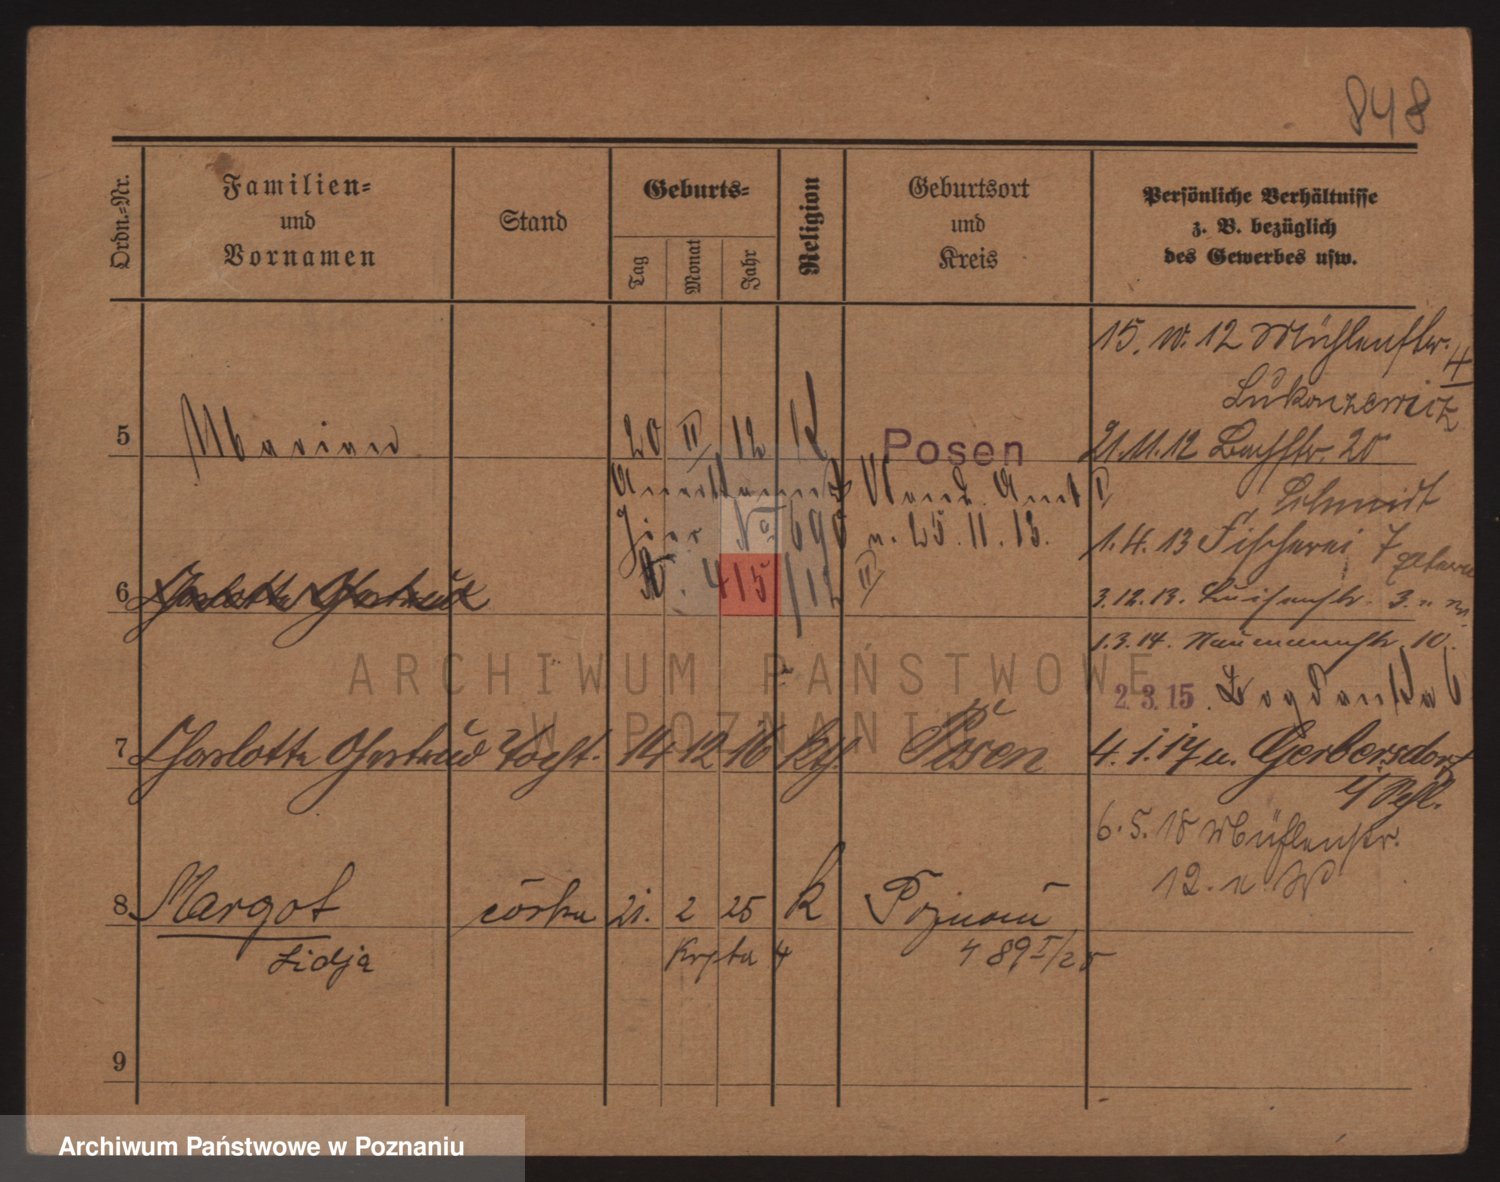 848
Ordn.=Nr.
Familien=
und
Vornamen
Stand
Geburts=
Tag
Monat
Jahr
Religion
Geburtsort
und
Kreis
Persönliche Verhältnisse
z. B. bezüglich
des Gewerbes usw.
15. 10. 12 Mühlenstr.
4
Lukonzewicz
5 Marian 20 II 12 k Posen
21. 11. 12 Bachstr. 20
Schmidt
Anerkannt Stand. Amt I
hier No 690 v. 25. 11. 13.
1. 4. 13 Fischerei 7
6 Charlotte Gertrud
N. 415/12 II
3. 12. 13. Luisenstr. 3.
1. 3. 14. Naumannstr. 10.
2. 3. 15. Bogdanka 6
ARCHIWUM PAŃSTWOWE
W POZNANIU
7 Charlotte Gertrud Tocht. 14 12 16 kth. Posen
4. 1. 17 n. Gerbersdorf
i/Schl.
6. 5. 18 Mühlenstr.
12. n. W
8 Margot córka 21. 2 25 k Poznań
Lidja
Krypta 4
489 I/25
9
Archiwum Państwowe w Poznaniu